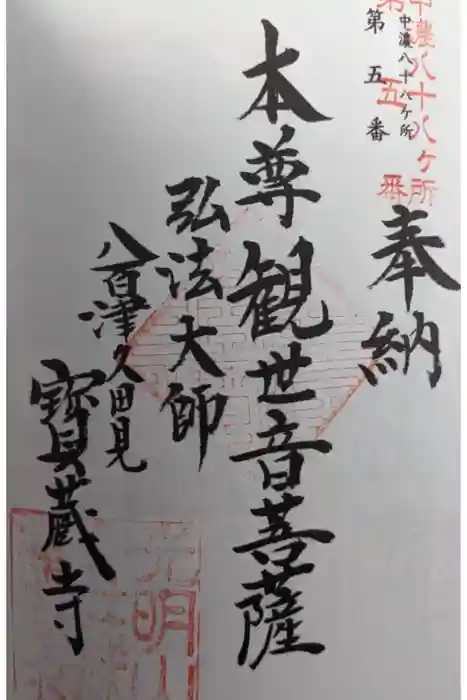 中濃八十八ケ所
第五番
中濃八十八ケ所
第五番
奉納
本尊観世音菩薩
弘法大師
八百津久田見
寳蔵寺
光明山